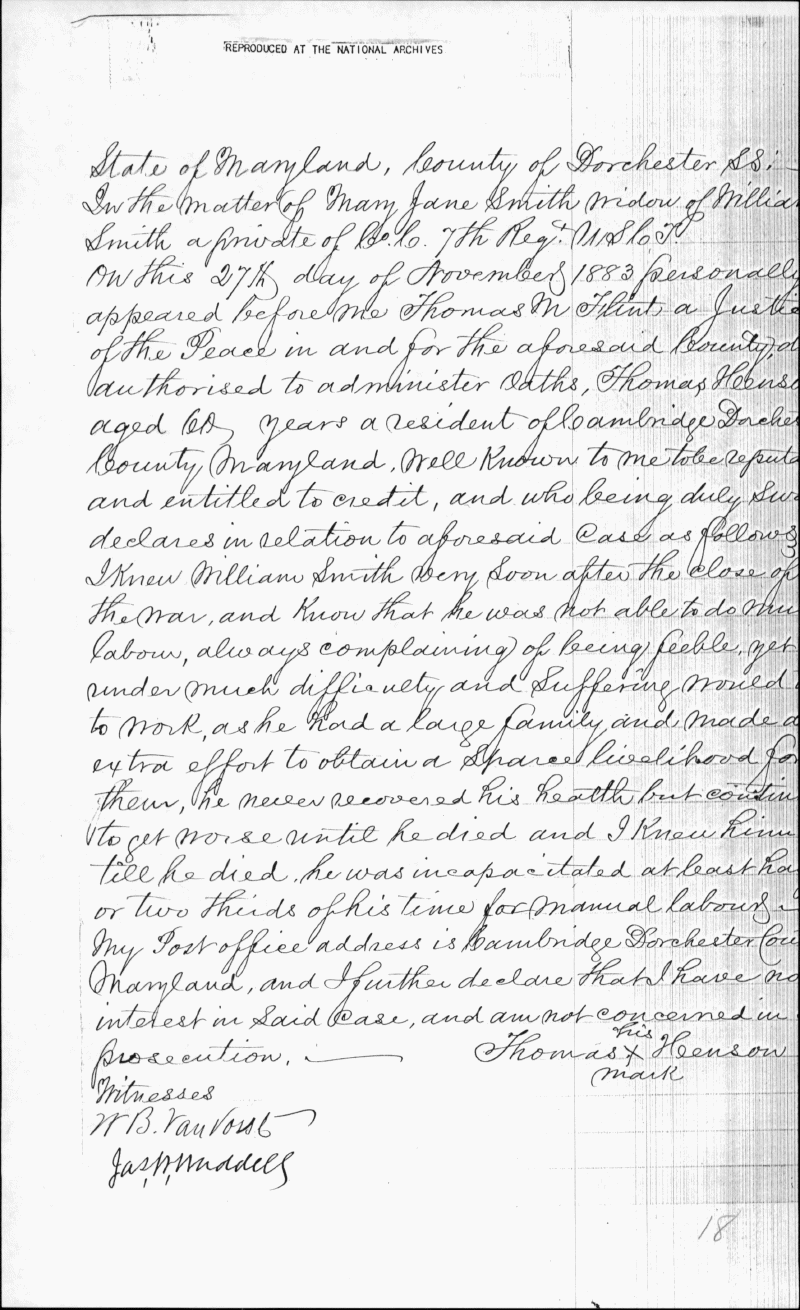 REPRODUCED AT THE NATIONAL ARCHIVES
State of Maryland, County of Dorchester SS:
In the matter of Mary Jane Smith widow of Willia
Smith a private of Co. C. 7th Regt. U.S.C.T.
On this 27th day of November 1883 personally
appeared before me Thomas M Flint a Justic
of the Peace in and for the aforesaid County, d
authorised to administer Oaths, Thomas Henso
aged 60 years a resident of Cambridge Dorches
County Maryland, Well Known to me to be reputa
and entitled to credit, and who being duly Swo
declares in relation to aforesaid Case as follows
I Knew William Smith very Soon after the close of
the war, and Know that he was not able to do mu
labour, always complaining of being feeble, yet
under much difficulty and Suffering would
to work, as he had a large family and made a
extra effort to obtain a Sparce livelihood for
them, he never recovered his health but contin
to get worse until he died and I Knew him
till he died. he was incapacitated at least ha
or two thirds of his time for manual labour.
My Post office address is Cambridge Dorchester Cou
Maryland, and I further declare that I have no
interest in Said Case, and am not concerned in
prosecution. Thomas X Henson
his
mark
Witnesses
W B. VanVorst
Jas. W. Waddell
18